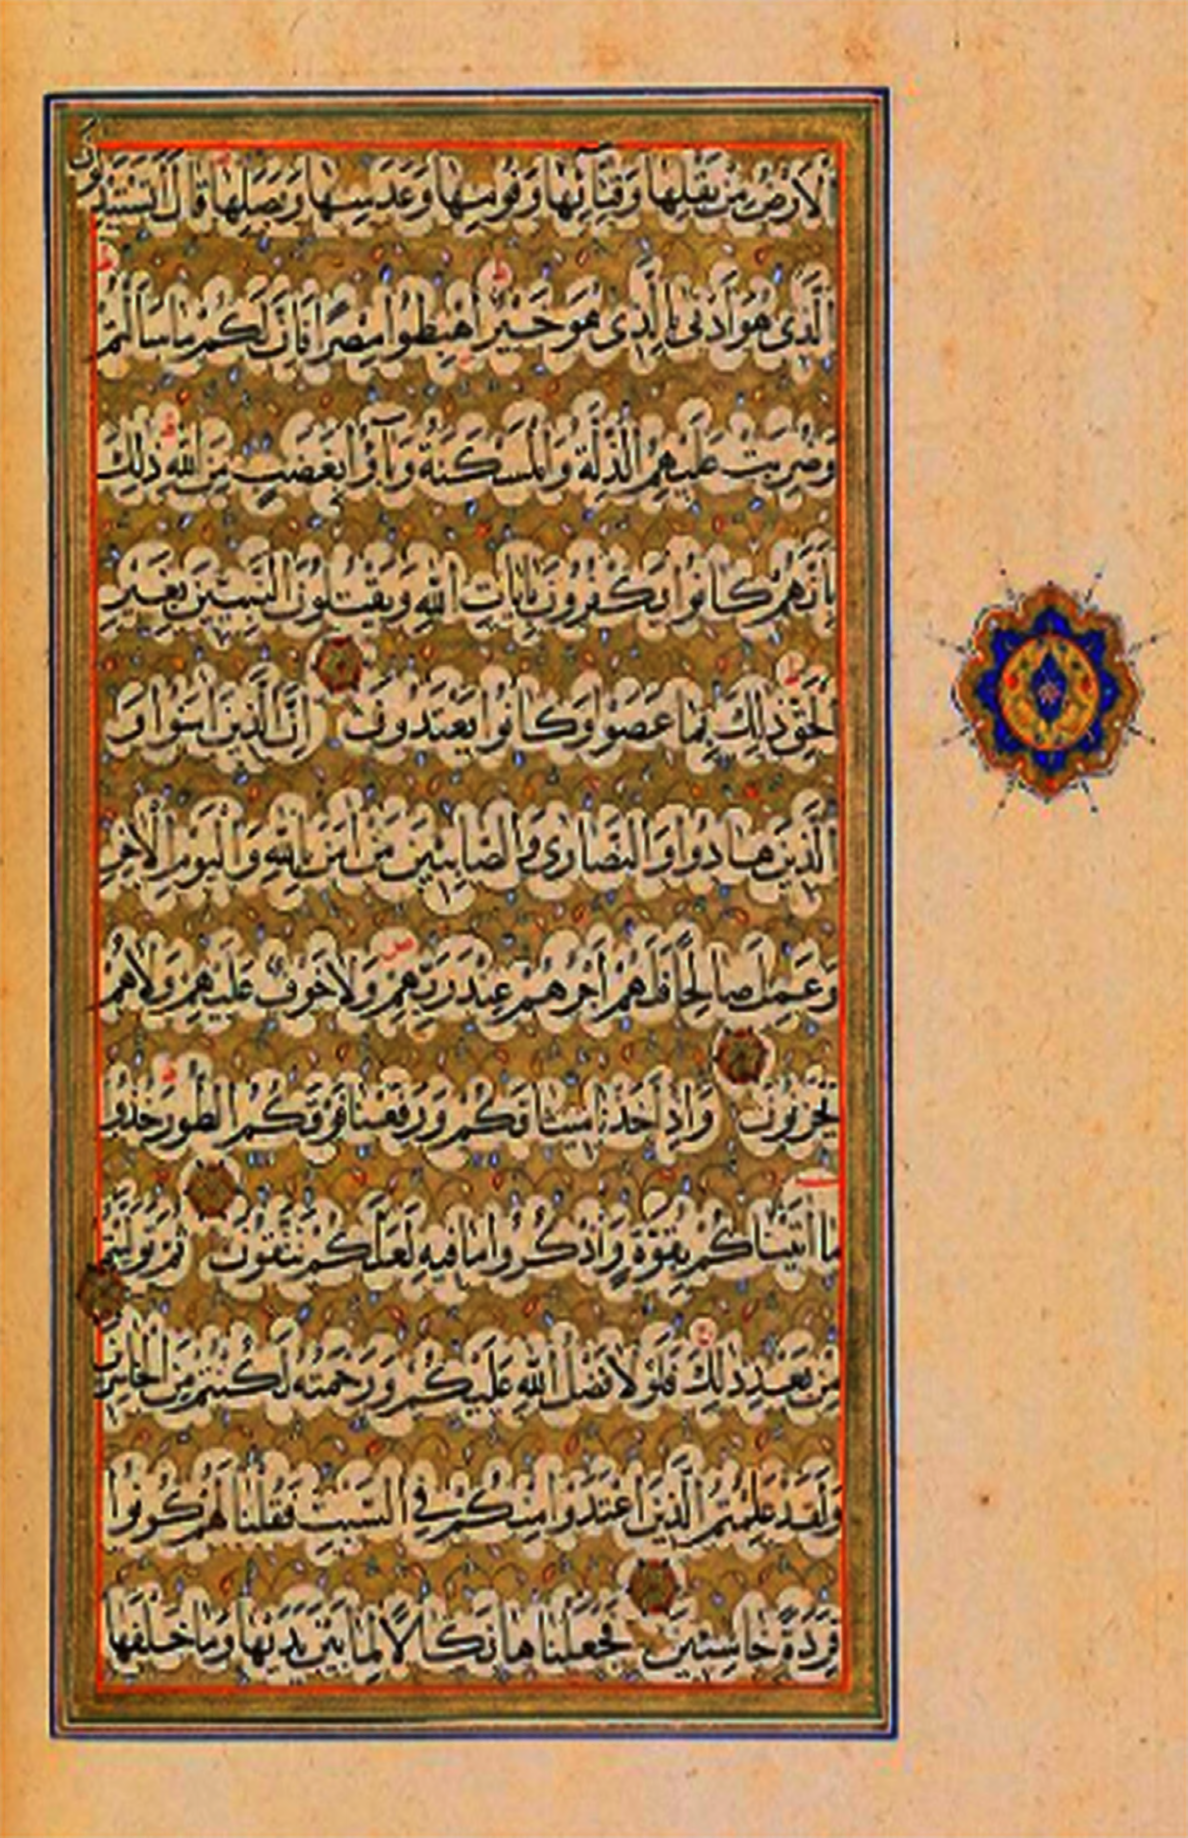 الْاَرْضُ مِنْ بَقْلِهَا وَقِثَّآئِهَا وَفُومِهَا وَعَدَسِهَا وَبَصَلِهَا قَالَ اَتَسْتَبْدِلُونَ
الَّذِى هُوَ اَدْنٰى بِالَّذِى هُوَ خَيْرٌ اِهْبِطُوا مِصْرًا فَاِنَّ لَكُمْ مَا سَاَلْتُمْ
وَضُرِبَتْ عَلَيْهِمُ الذِّلَّةُ وَالْمَسْكَنَةُ وَبَآؤُا بِغَضَبٍ مِنَ اللّٰهِ ذٰلِكَ
بِاَنَّهُمْ كَانُوا يَكْفُرُونَ بِاٰيَاتِ اللّٰهِ وَيَقْتُلُونَ النَّبِيّٖنَ بِغَيْرِ
الْحَقِّ ذٰلِكَ بِمَا عَصَوْا وَكَانُوا يَعْتَدُونَ اِنَّ الَّذِينَ اٰمَنُوا وَ
الَّذِينَ هَادُوا وَالنَّصَارٰى وَالصَّابِئِينَ مَنْ اٰمَنَ بِاللّٰهِ وَالْيَوْمِ الْاٰخِرِ
وَعَمِلَ صَالِحًا فَلَهُمْ اَجْرُهُمْ عِنْدَ رَبِّهِمْ وَلَا خَوْفٌ عَلَيْهِمْ وَلَا هُمْ
يَحْزَنُونَ وَاِذْ اَخَذْنَا مِيثَاقَكُمْ وَرَفَعْنَا فَوْقَكُمُ الطُّورَ خُذُوا
مَا اٰتَيْنَاكُمْ بِقُوَّةٍ وَاذْكُرُوا مَا فِيهِ لَعَلَّكُمْ تَتَّقُونَ ثُمَّ تَوَلَّيْتُمْ
مِنْ بَعْدِ ذٰلِكَ فَلَوْلَا فَضْلُ اللّٰهِ عَلَيْكُمْ وَرَحْمَتُهُ لَكُنْتُمْ مِنَ الْخَاسِرِينَ
وَلَقَدْ عَلِمْتُمُ الَّذِينَ اعْتَدَوْا مِنْكُمْ فِي السَّبْتِ فَقُلْنَا لَهُمْ كُونُوا
قِرَدَةً خَاسِئِينَ فَجَعَلْنَاهَا نَكَالًا لِمَا بَيْنَ يَدَيْهَا وَمَا خَلْفَهَا